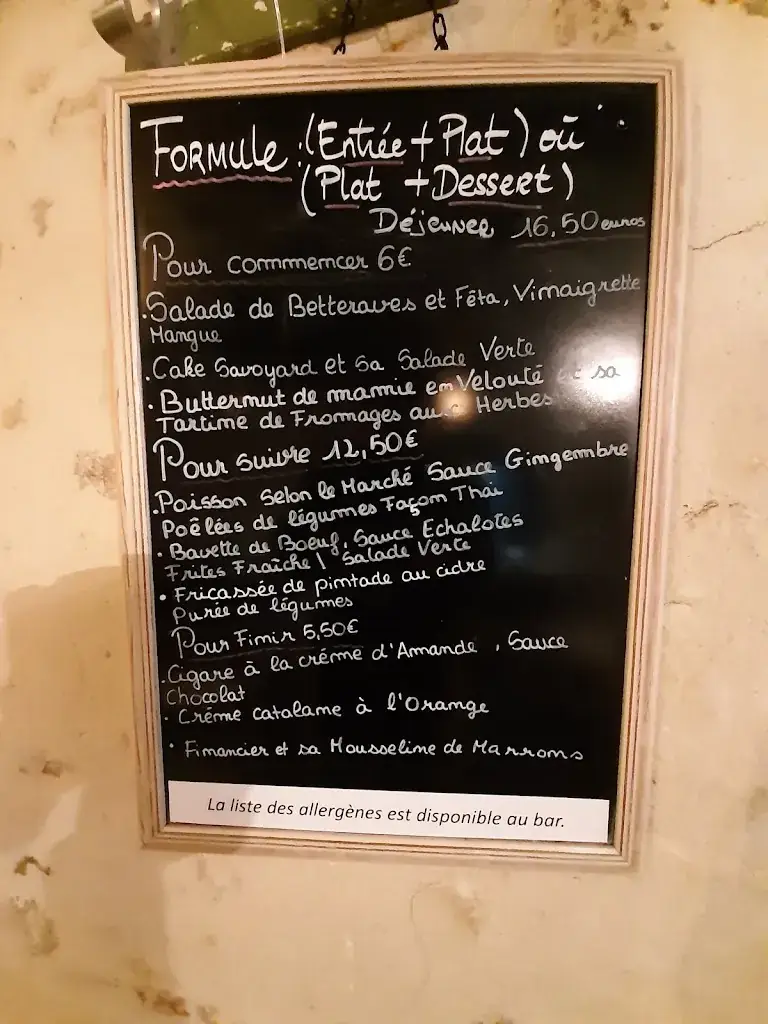 FORMULE : (Entrée + Plat) où
(Plat + Dessert)
Déjeuner 16,50 euros
Pour commencer 6€
. Salade de Betteraves et Fêta, Vinaigrette
Mangue
. Cake Savoyard et sa Salade Verte
. Butternut de mamie en Velouté et sa
Tartine de Fromages aux Herbes
Pour suivre 12,50€
. Poisson selon le Marché Sauce Gingembre
Poêlées de légumes Façon Thai
. Bavette de Boeuf, Sauce Echalotes
Frites Fraîche \ Salade Verte
. Fricassée de pintade au cidre
Purée de légumes
Pour Finir 5,50€
. Cigare à la créme d'Amande , Sauce
Chocolat
. Créme catalane à l'Orange
. Financier et sa Mousseline de Marrons
La liste des allergènes est disponible au bar.